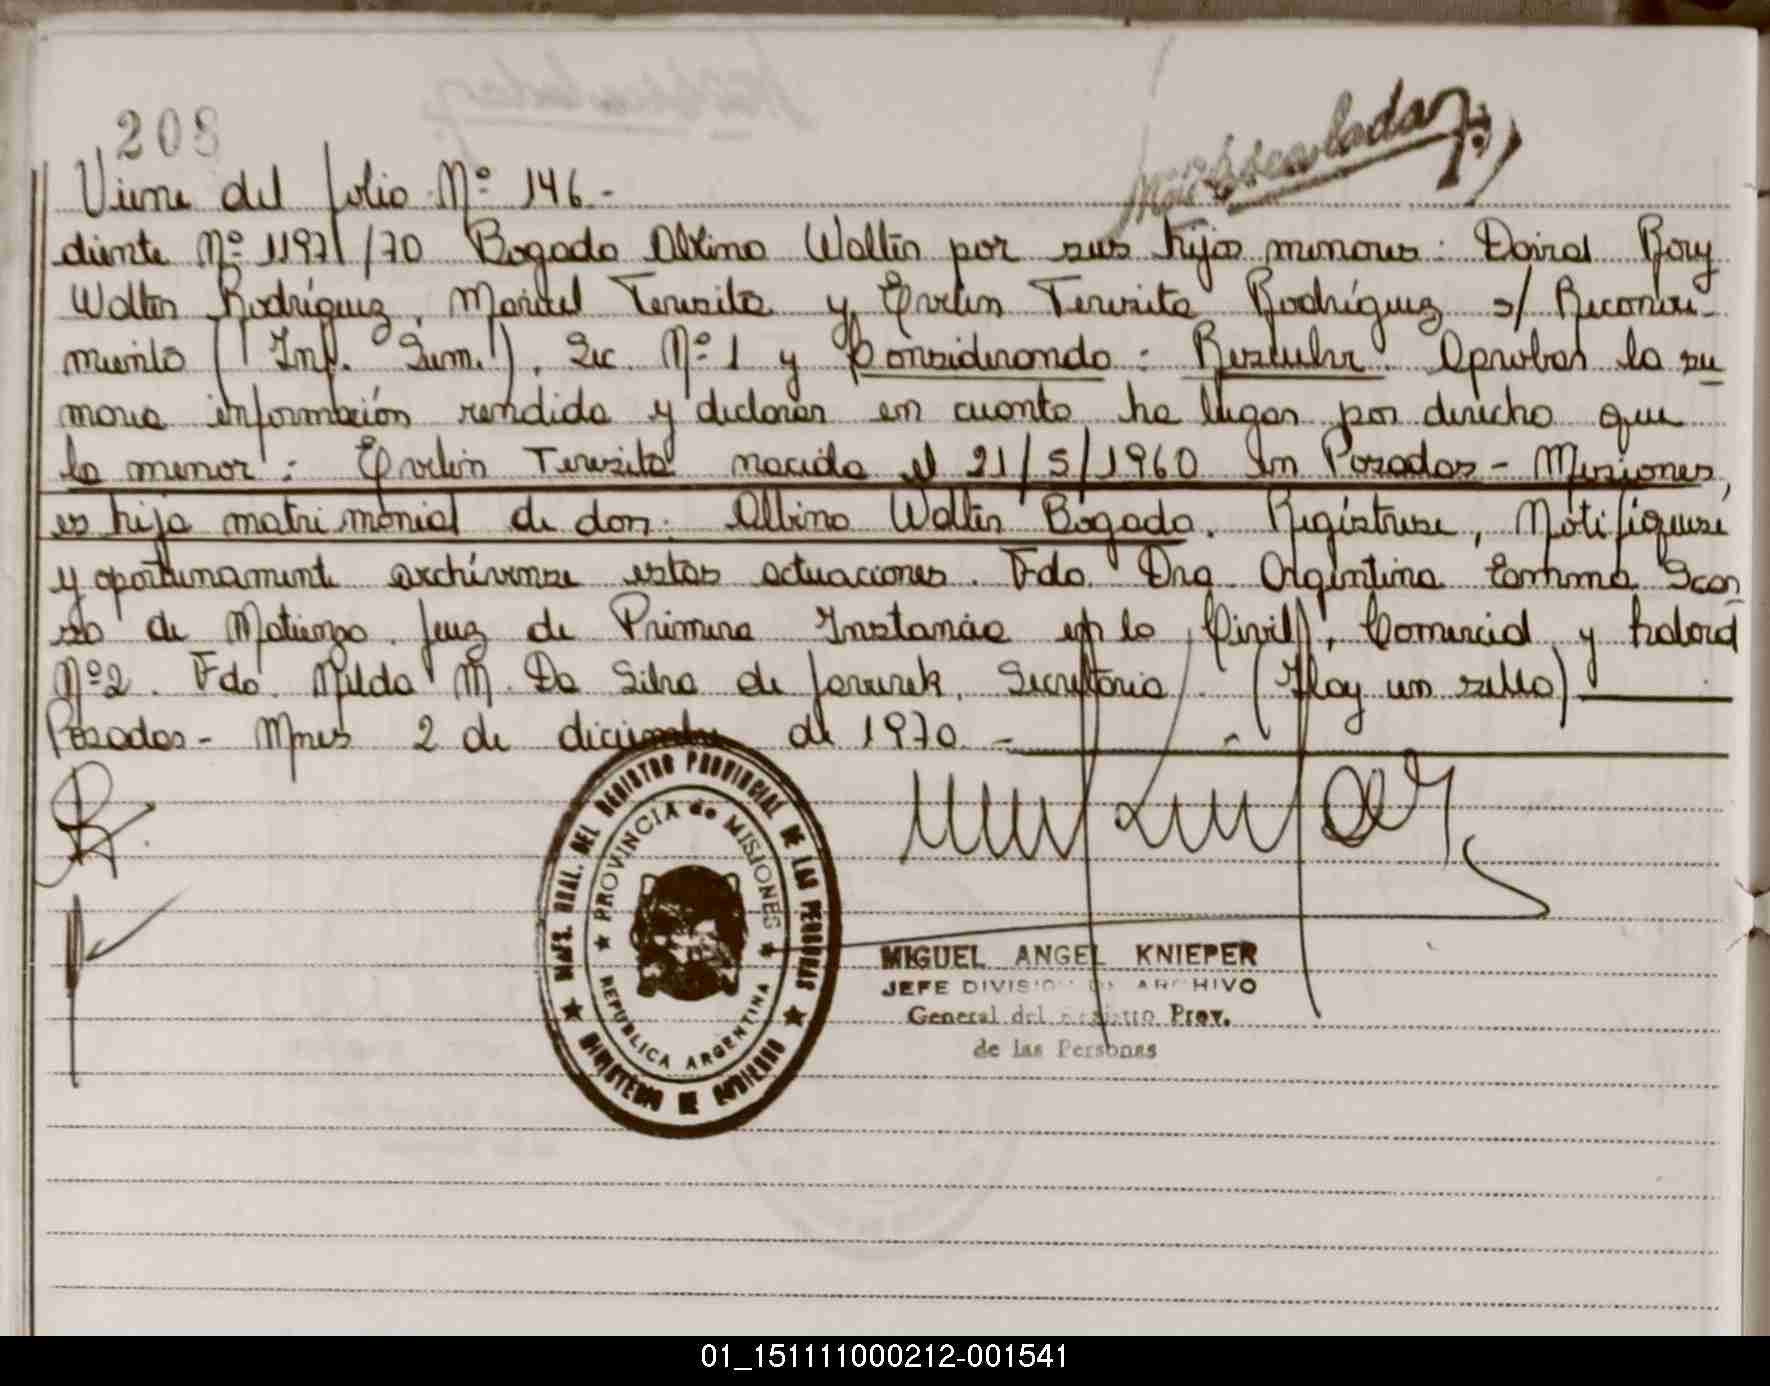 208
Viene del folio Nº 146.-
diente Nº 11971/70 Bogado Albino Walter por sus hijos menores: Doiral Rory
Walter Rodríguez, Maricel Teresita y Evelin Teresita Rodríguez s/ Reconoci-
miento (Inf. Sum.). Sec. Nº 1 y Considerando: Resuelvo. Aprobar la su
maria información rendida y declarar en cuanto ha lugar por derecho que
la menor: Evelin Teresita nacida el 21/5/1960 en Posadas - Misiones,
es hija matrimonial de don: Albino Walter Bogado. Regístrese, Notifíquese
y oportunamente archívense estas actuaciones. Fdo. Dra. Argentina Scar
so de Matienzo. Juez de Primera Instancia en lo Civil, Comercial y Laboral
Nº 2. Fdo. Nilda M. Da Silva de , Secretaria. (Hay un sello)
Posadas - Mnes 2 de diciembre de 1970.-
DIR. GRAL. DEL REGISTRO PROVINCIAL DE LAS PERSONAS
PROVINCIA de MISIONES
REPUBLICA ARGENTINA
MINISTERIO DE GOBIERNO
MIGUEL ANGEL KNIEPER
JEFE DIVISION DE ARCHIVO
General del Registro Prov.
de las Personas
01_151111000212-001541